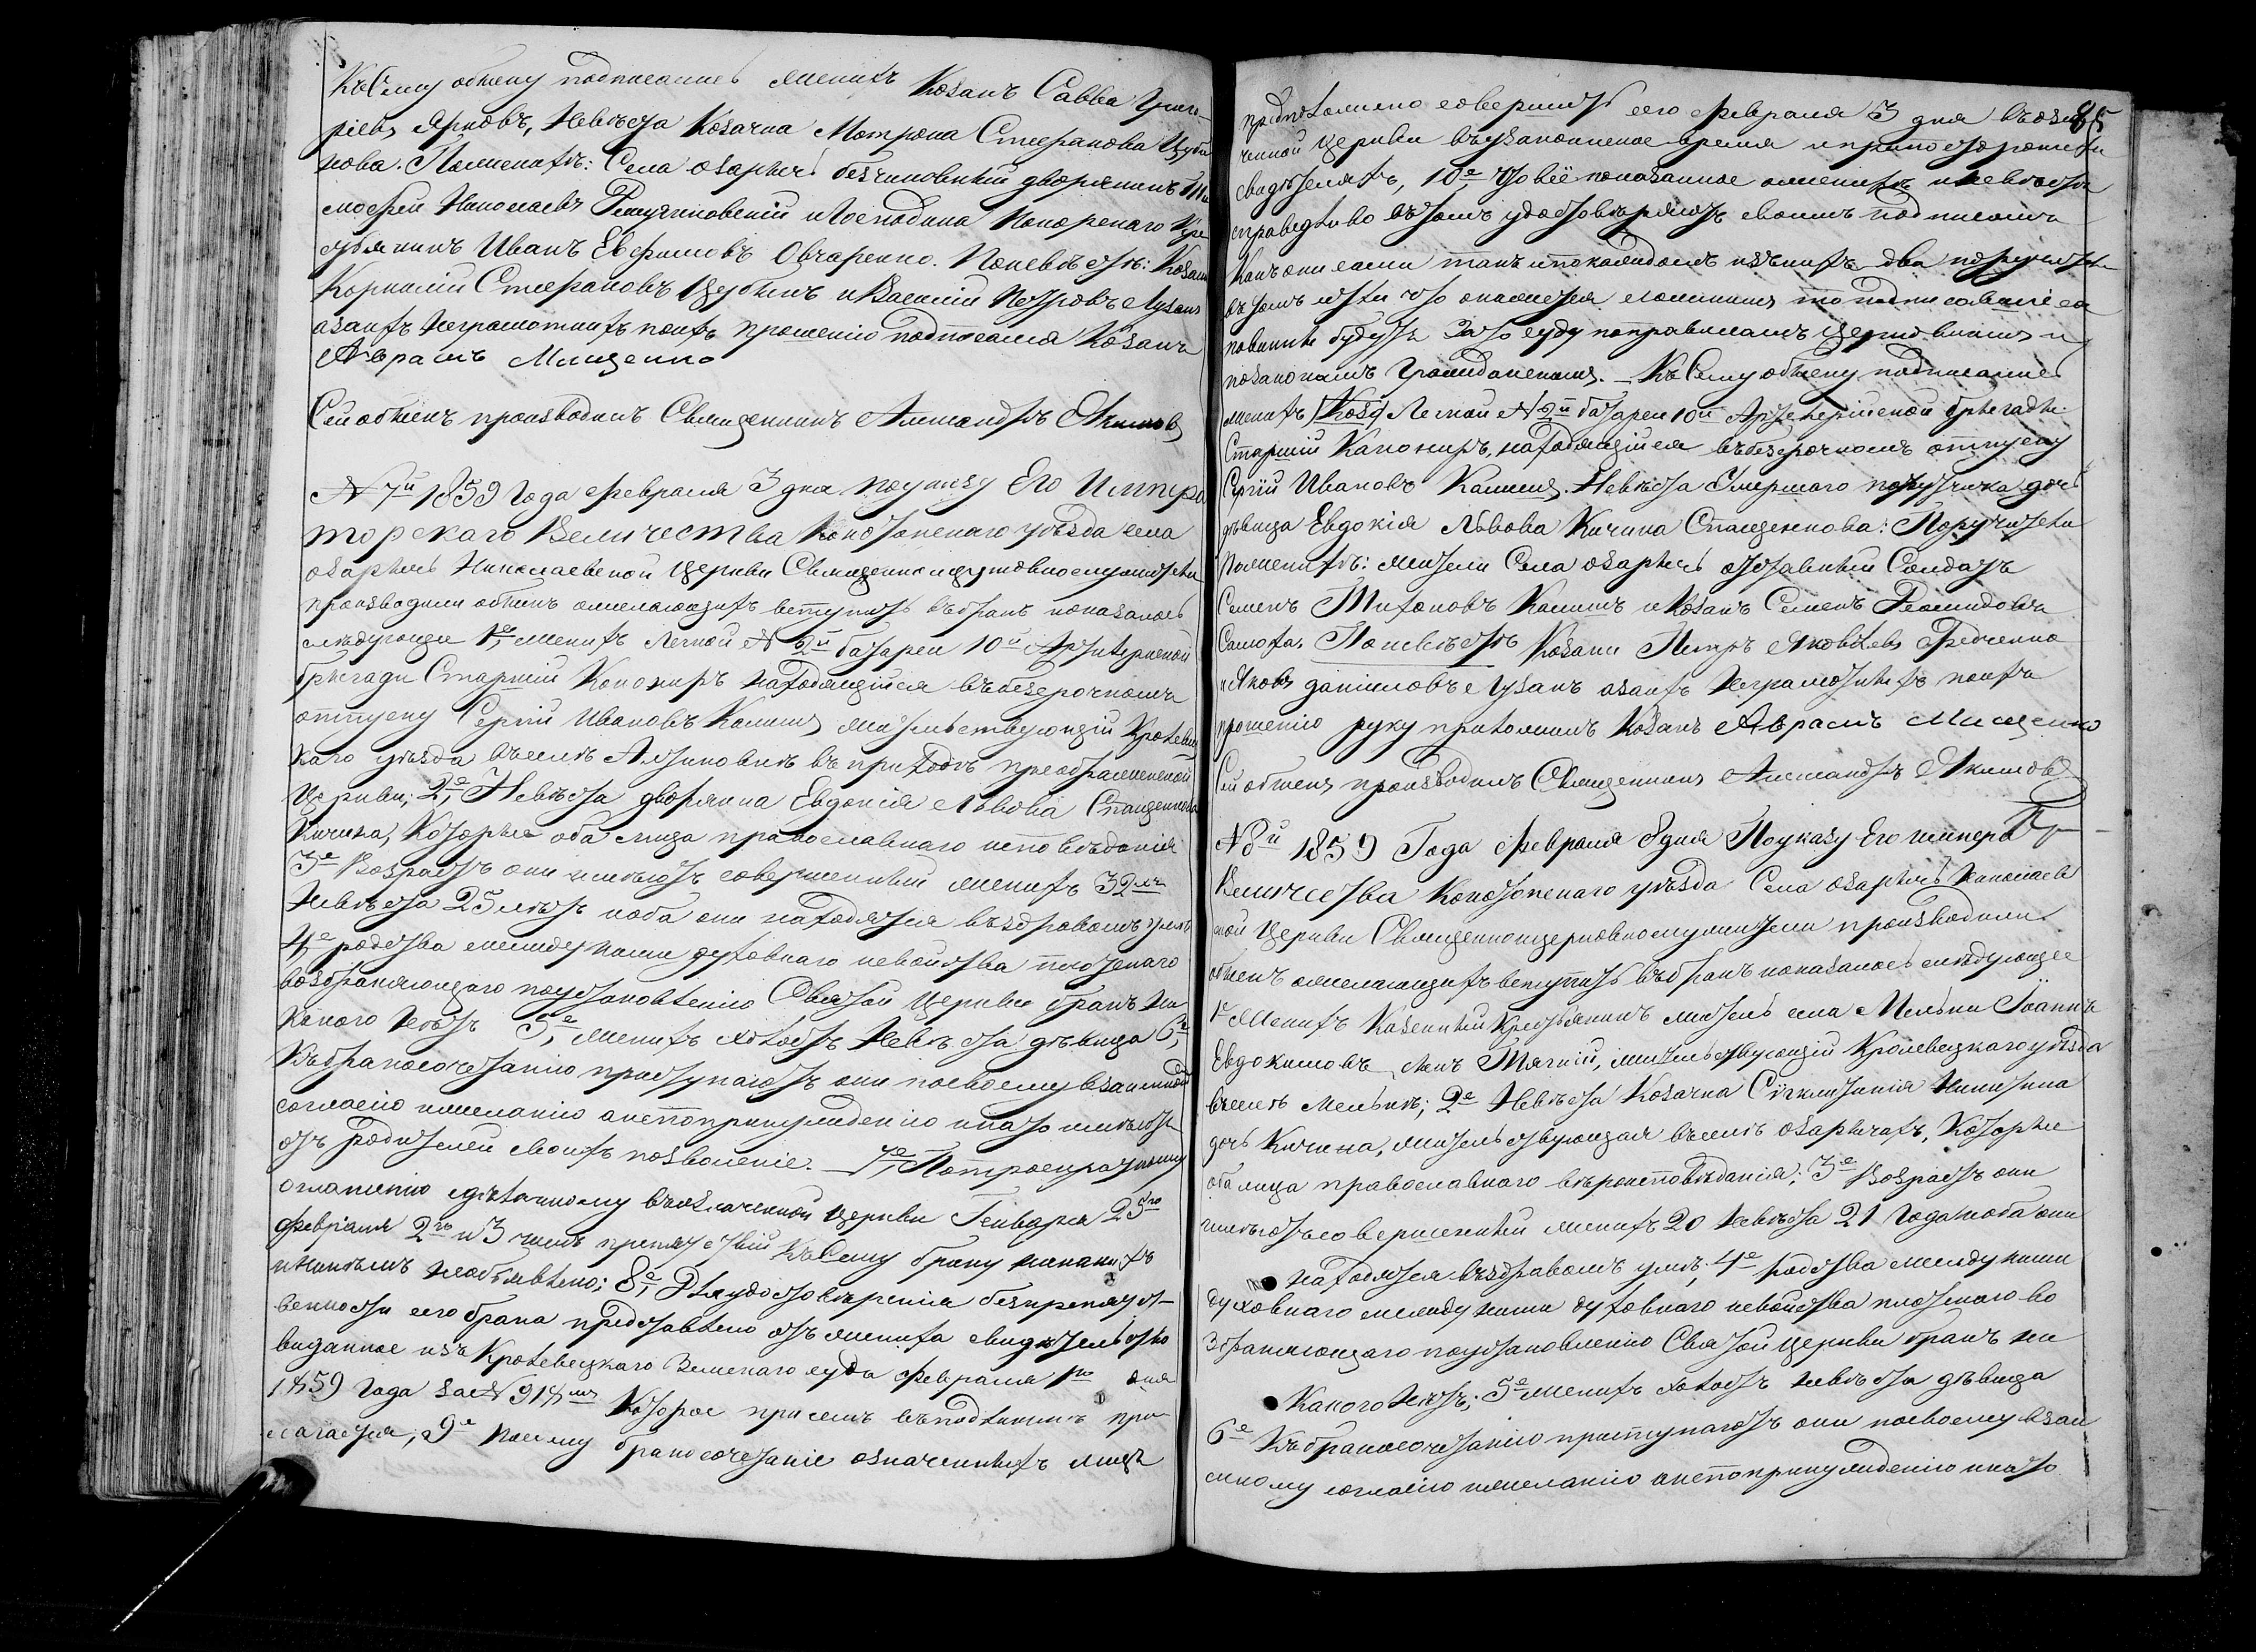 Къ Сему обыску подписались Женихъ Козакъ Савва Григо-
ріевъ Ярковъ, Невѣста Козачка Матрона Стефанова Цуба
нова. Пожениху: Села Озаричъ безчиновный дворянинъ Ти
мофей Николаевъ и Господина
Иванъ Евфимовъ Овчаренко. Поневѣстѣ: Козаки
Корнилій Стефановъ и Василій Петровъ Лузанъ
азанихъ неграмотныхъ поихъ прошенію подписался Козакъ
Аврамъ Мищенко
Сей обыскъ производилъ Священникъ Александръ Якимовъ
№ 7й 1859 Года Февраля 3 дня Поуказу Его Импера
торскаго Величества Конотопскаго уѣзда села
Озаричъ Николаевской Церкви Священноицерковнослужители
производили обыскъ ожелающихъ вступить въбракъ показалось
слѣдующее 1е, Женихъ Легкой № 2й батареи 10й Артилерійской
бригады Старшій Канониръ находящійся въбезсрочномъ
отпуску Сергій Ивановъ Калишъ жительствующій Кролевец
каго уѣзда въселѣ Алтиновкѣ въ приходѣ преображенской
Церкви; 2е, Невѣста дворянка Евдокія Львова Стащенкова
Кичина, Которые оба лица православнаго исповѣданія
3е Возрастъ они имѣютъ совершенный женихъ 32 лѣ
невѣста 25 лѣтъ иоба они находятся въздравомъ умѣ
4е родства между ними духовнаго исвойства плотскаго
возбраняющаго поустановленію Святой Церкви бракъ ни
какого нѣтъ 5е, Женихъ холостъ Невѣста дѣвица 6е,
Къбракосочетанію приступаютъ они посвоему взаимному
согласію ижеланію анепопринужденію инато имѣютъ
отъ родителей своихъ позволеніе. — 7е, Потроекратному
оглашенію сдѣланному въозначенной Церкви Генваря 25го
Февраля 2го и 3 чиселъ препятствій Къ Сему браку никакихъ
иникѣмъ необъявлено; 8е, Для удостовѣренія безпрепятст-
венности сего брака представлено отъ жениха свидѣтельство
выданное изъ Кролевецкаго Земскаго суда Февраля 1го дня
1859 Года за № 918мъ Которое присемъ въподлинникѣ при-
лагается; 9е Посему бракосочетаніе означенныхъ лицъ
85
предположено совершить сего Февраля 3 дня въозна
ченной Церкви въузаконенное время иприпостороннихъ
свидѣтеляхъ, 10е, Что всё показанное оженихѣ иневѣстѣ
справедливо Въ томъ удостовѣряютъ своимъ подписомъ
Какъ они сами такъ и покаждомъ изънихъ два поручителя
въ томъ что ли что окажется ложнымъ то подписавшіеся
повинны будутъ Зато суду поправиламъ церковнымъ и
позаконамъ Гражданскимъ. — Къ Сему обыску подписались
женихъ Легкой № 2й батареи 10й Артилерійской бригады
Старшій Канониръ, находящійся въбезсрочномъ отпуску
Сергій Ивановъ Калишъ. Невѣста Умершаго поручика дочь
дѣвица Евдокія Львова Кичина Стащенкова: Поручители
Пожениху: жители Села Озаричъ отставный Солдатъ
Семенъ Тихоновъ Калишъ и Козакъ Семенъ
Самоха. Поневѣстѣ Козаки Петръ Яковлевъ Федченко
и Яковъ Даниловъ Лузанъ азанихъ неграмотныхъ поихъ
прошенію руку приложилъ Козакъ Аврамъ Мищенко
Сей обыскъ производилъ Священникъ Александръ Якимовъ
№ 8й 1859 Года Февраля 8 дня Поуказу Его импера
Величества Конотопскаго уѣзда Села Озаричъ Николаев
ской Церкви Священноицерковнослужители производили
обыскъ ожелающихъ вступить въбракъ показалось слѣдующее
1е Женихъ Казенный Крестьянинъ житель села Мельни Іоаннъ
Евдокимовъ сынъ Тягній, жительствующій Кролевецкаго уѣзда
въселѣ Мельнѣ; 2е Невѣста Козачка Сѵгклитикія Никитина
дочь Кичина, жительствующая въселѣ Озаричахъ, Которые
оба лица православнаго вѣроисповѣданія; 3е Возрастъ они
имѣютъ совершенный женихъ 20 невѣста 21 Года иоба они
находятся въздравомъ умѣ; 4е родства между ними
духовнаго между ними духовнаго исвойства плотскаго во
збраняющаго поустановленію Святой Церкви бракъ ни
Какого Нѣтъ; 5е Женихъ холостъ невѣста дѣвица
6е Къбракосочетанію приступаютъ они посвоему взаи
мному согласію ижеланію анепопринужденію инато